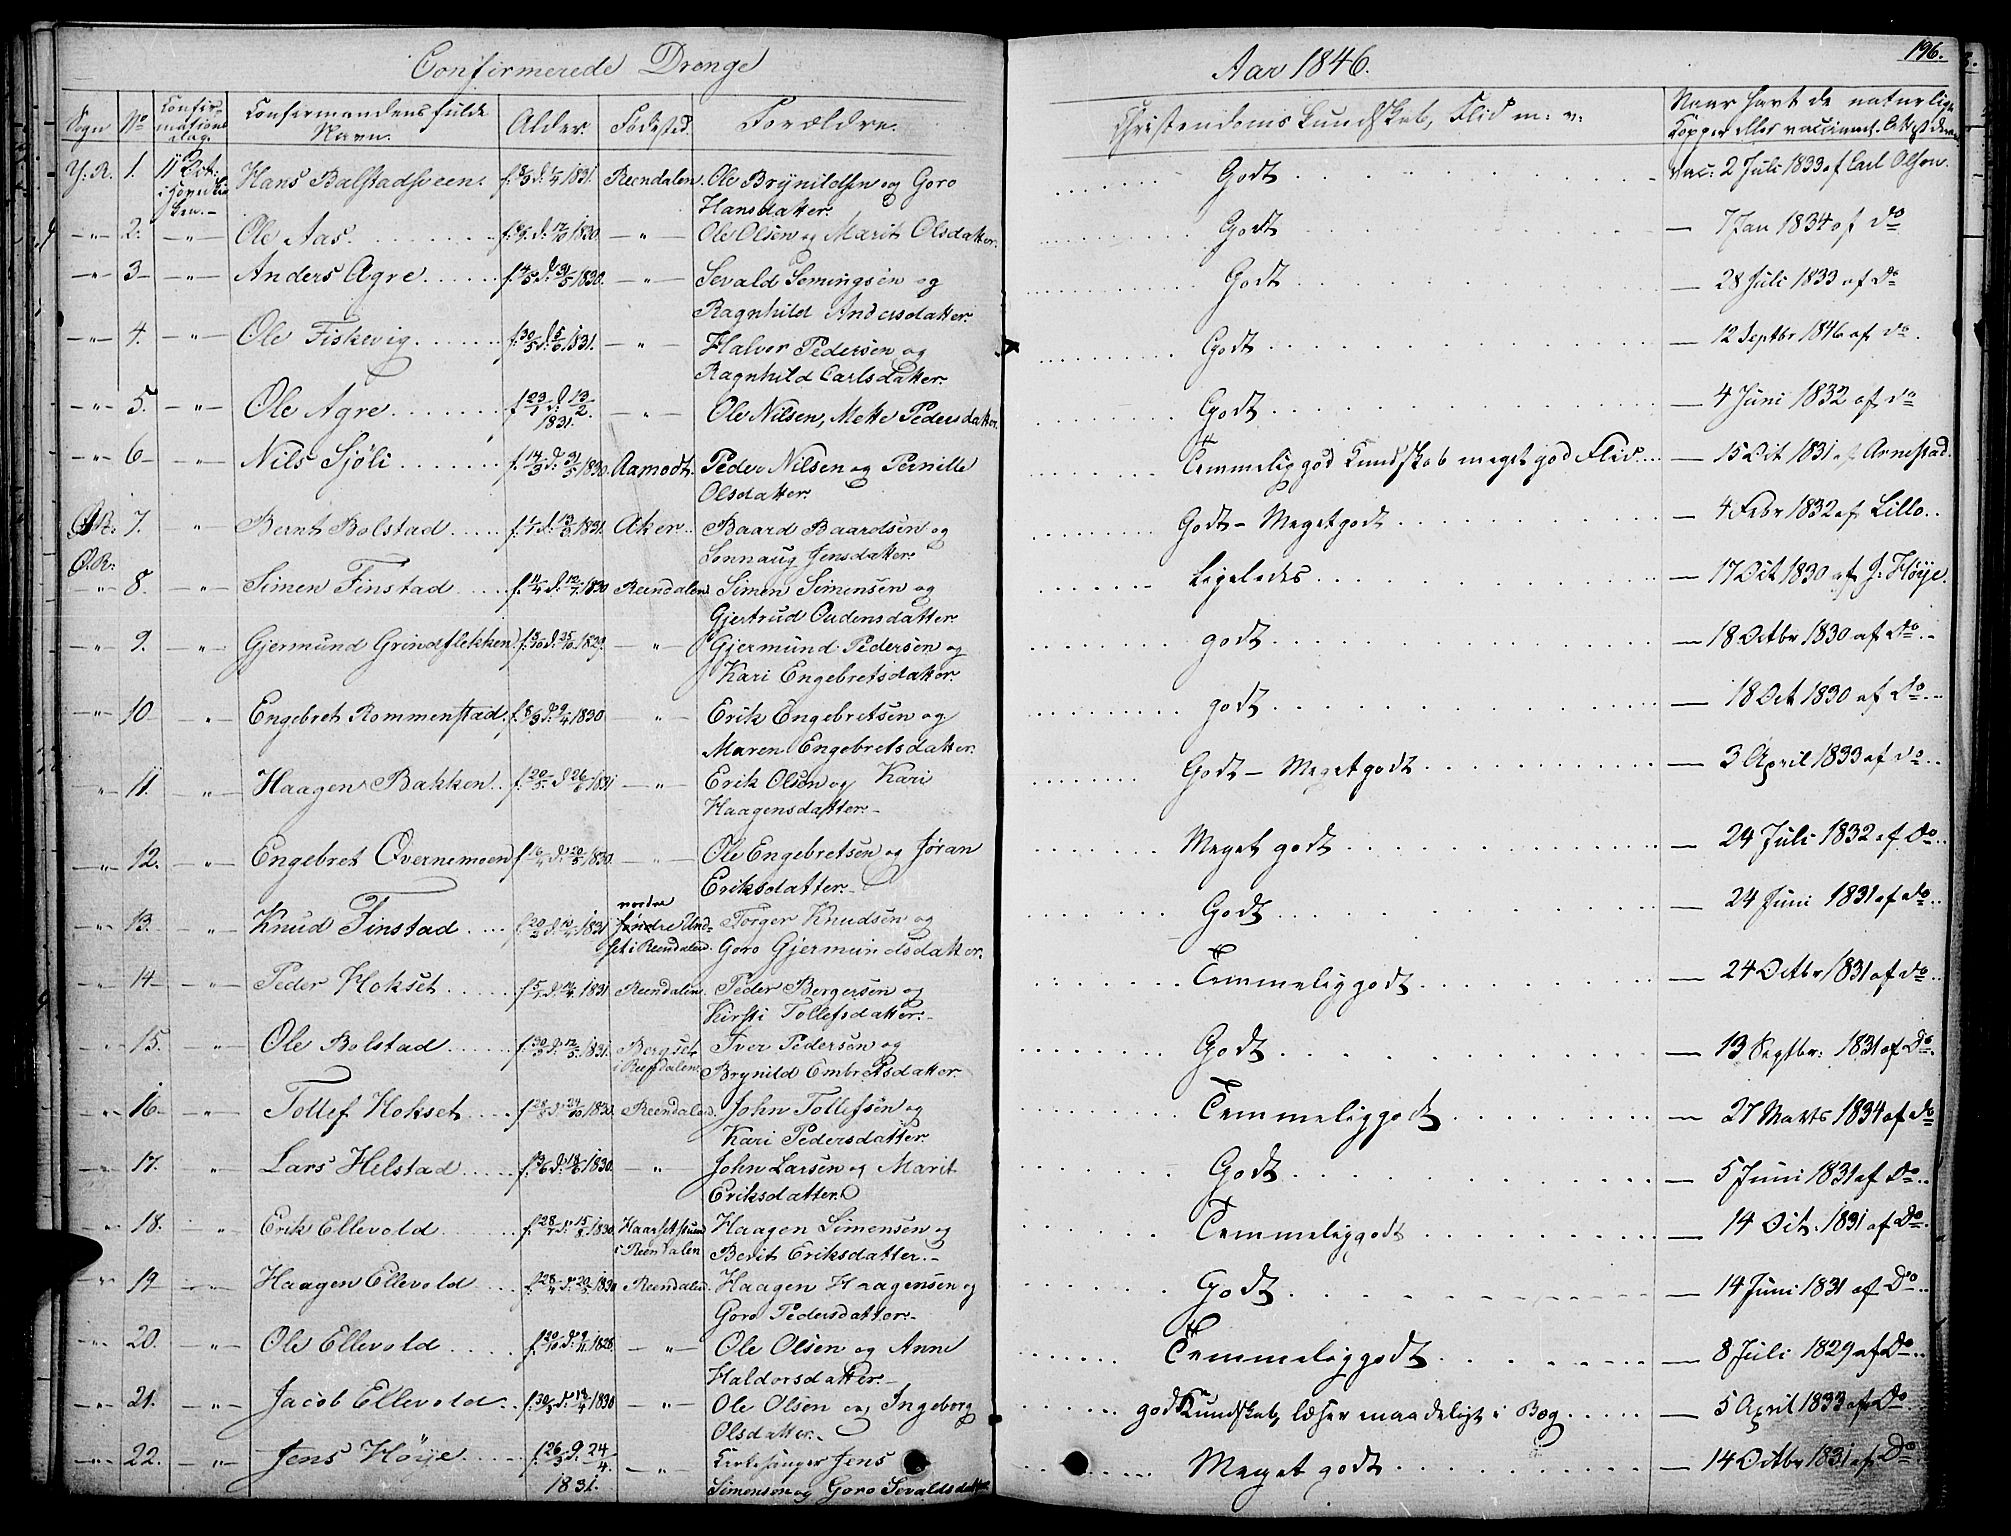 Confirmerede Drenge
Aar 1846.
196.
Sogn No Confir- Confirmandens fulde Alder. Fødested. Forældre. Christendoms Kundskab, Flid m: v: Naar havt de naturlige
mations Navn. Kopper eller vaccineret. Attest derom
dag.
Y.R. 1. 11 Oct: Hans Balstadsveen. 1831. Reendalen. Ole Brynildsen og Goro Godt vac: 2 Juli 1833 af Carl Olsen.
Hansdatter.
-"- 2. -"- Ole Aas. 1830. -"- Ole Olsen og Marit Olsdatter. Godt - 7 Jan 1834 af do
-"- 3- -"- Anders Agre 1830. -"- Sevald Semingsen og Godt - 28 Juli 1833 af do
Ragnhild Andersdatter.
-"- 4. -"- Ole Fiskevig 1831. -"- Halvor Pedersen og Godt - 12 Septbr 1846 af do.
Ragnhild Carlsdatter.
-"- 5. -"- Ole Agre f 23/1 d. 13/2. -"- Ole Nilsen, Mette Pedersdatter Godt - 4 Juni 1832 af do
1831.
-"- 6- -"- Nils Sjöli 1830. Aamodt. Peder Nilsen og Pernille Temmelig god Kundskab meget god Flid - 15 Oct 1831 af Arnestad.
Olsdatter.
7. " Bernt Bolstad 1831. Aker. Baard Baardsen og Godt - Meget godt - 4 Febr 1832 af Lillo.
Sonnaug Jensdatter.
Ø.R:
-"- 8. -"- Simen Finstad 1830 Reendalen Simen Simensen og Ligeledes - 17 Oct 1830 af J: Höye.
Gjertrud Oudensdatter.
-"- 9. -"- Gjermund Grindflekken 1829. -"- Gjermund Pedersen og godt - 18 Octbr 1830 af do
Kari Engebretsdatter.
-"- 10 -"- Engebret Rommenstad. 1830 " Erik Engebretsen og godt - 18 Oct 1830 af do
Maren Engebretsdatter.
" 11. " Haagen Bakken. 1831 -"- Erik Olsen og Kari Godt - Meget godt - 3 April 1833 af do
Haagensdatter.
-"- 12. -"- Engebret Øvernemoen 1830. -"- Ole Engebretsen og Jøran Meget godt - 24 Juli 1832 af do
Eriksdatter.
nordre
-"- 13. " Knud Finstad 1831 søndre Und- Torger Knudsen og Godt 24 Juni 1831 af do
set i Reendalen. Goro Gjermundsdatter.
-"- 14 -"- Peder Hokset 1831 Reendalen. Peder Bergersen og Temmelig godt - 24 Octbr 1831 af do
Kirsti Tollefsdatter.
-"- 15. " Ole Bolstad 1831. Bergset Iver Pedersen og Godt - 13 Septbr: 1831 af do.
i Reendalen. Brynild Embretsdatter.
-"- 16- -"- Tollef Hokset 1830. Reendalen. John Tollefsen og Temmelig godt - 27 Marts 1834 af do
Kari Pedersdatter
17. " Lars Helstad 1830. -"- John Larsen og Marit Godt - 5 Juni 1831 af do
Eriksdatter.
-"- 18. " Erik Ellevold 1830. Haagen Simensen og Temmelig godt - 14 Oct. 1831 af do
i Reendalen Berit Eriksdatter.
-"- 19 -"- Haagen Ellevold 1830 Reendalen. Haagen Haagensen og Godt - 14 Juni 1831 af do
Goro Pedersdatter.
-"- 20. -"- Ole Ellevold 1828 -"- Ole Olsen og Anne Temmelig godt - 8 Juli 1829 af do
Haldorsdatter.
-"- 21. -"- Jacob Ellevold. 1830 -"- Ole Olsen og Ingeborg god Kundskab, læser maadeligt i Bog - 5 April 1833 af do
Olsdatter.
-"- 22. -"- Jens Höye f. 26/3 d. 24/4 -"- Kirkesanger Jens Meget godt - 14 Octbr 1831 af do
1831. Simensen og Goro Sevaldsdatter